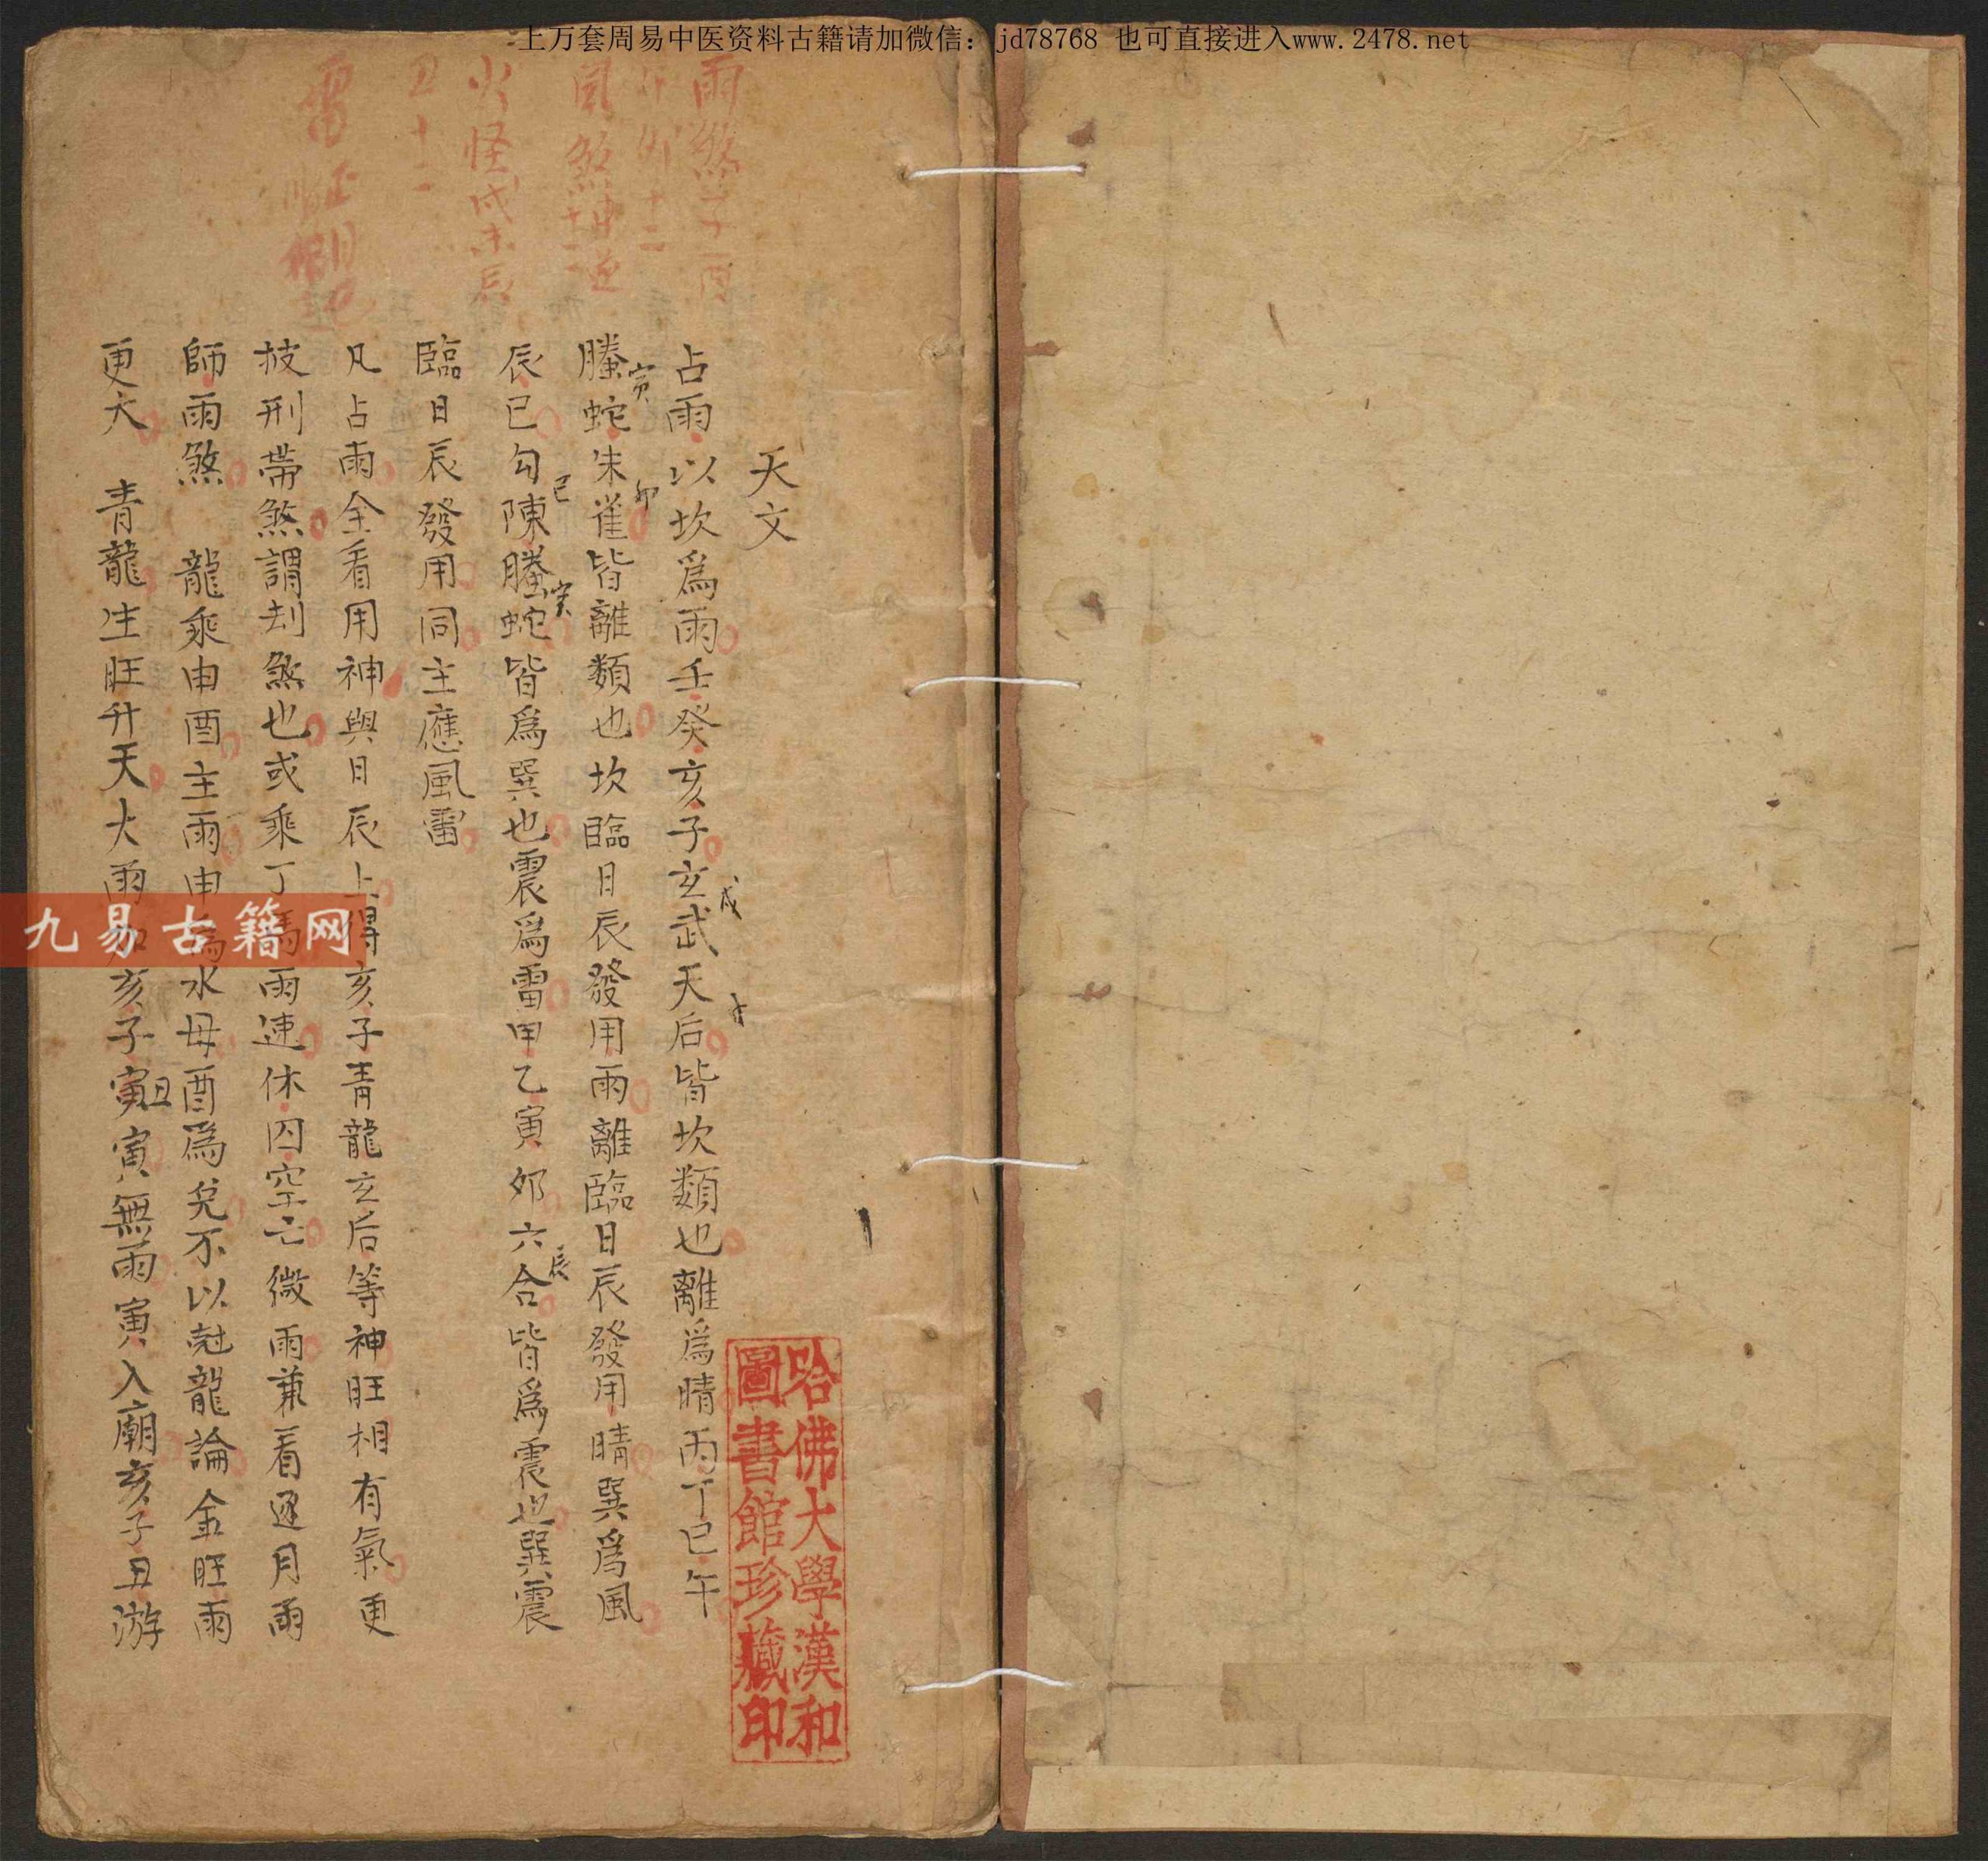 上万套周易中医资料古籍请加微信: jd78768 也可直接进入www.2478.net
天文
占雨以坎為雨壬癸亥子玄武天后皆坎類也離為晴丙丁巳午
戌
螣蛇朱雀皆離類也坎臨日辰發用雨離臨日辰發用晴巽為風
寅
卯
辰巳勾陳螣蛇皆為巽也震為雷甲乙寅夘六合皆為震也巽震
巳
寅
辰
臨日辰發用同主應風雷
凡占雨全看用神與日辰上得亥子青龍玄后等神旺相有氣更
披刑帶煞謂刦煞也或乘丁馬雨速休囚空亡微雨兼看逐月雨
師雨煞 龍乘申酉主雨申為水母酉為兌不以尅龍論金旺雨
更大 青龍生旺升天大雨如亥子寅寅無雨寅入廟亥子丑游
丑
雨煞子酉
十二
風煞申逆十一
火怪戌未辰
丑十二
雷
哈佛大學漢和
圖書館珍藏印
九易古籍网